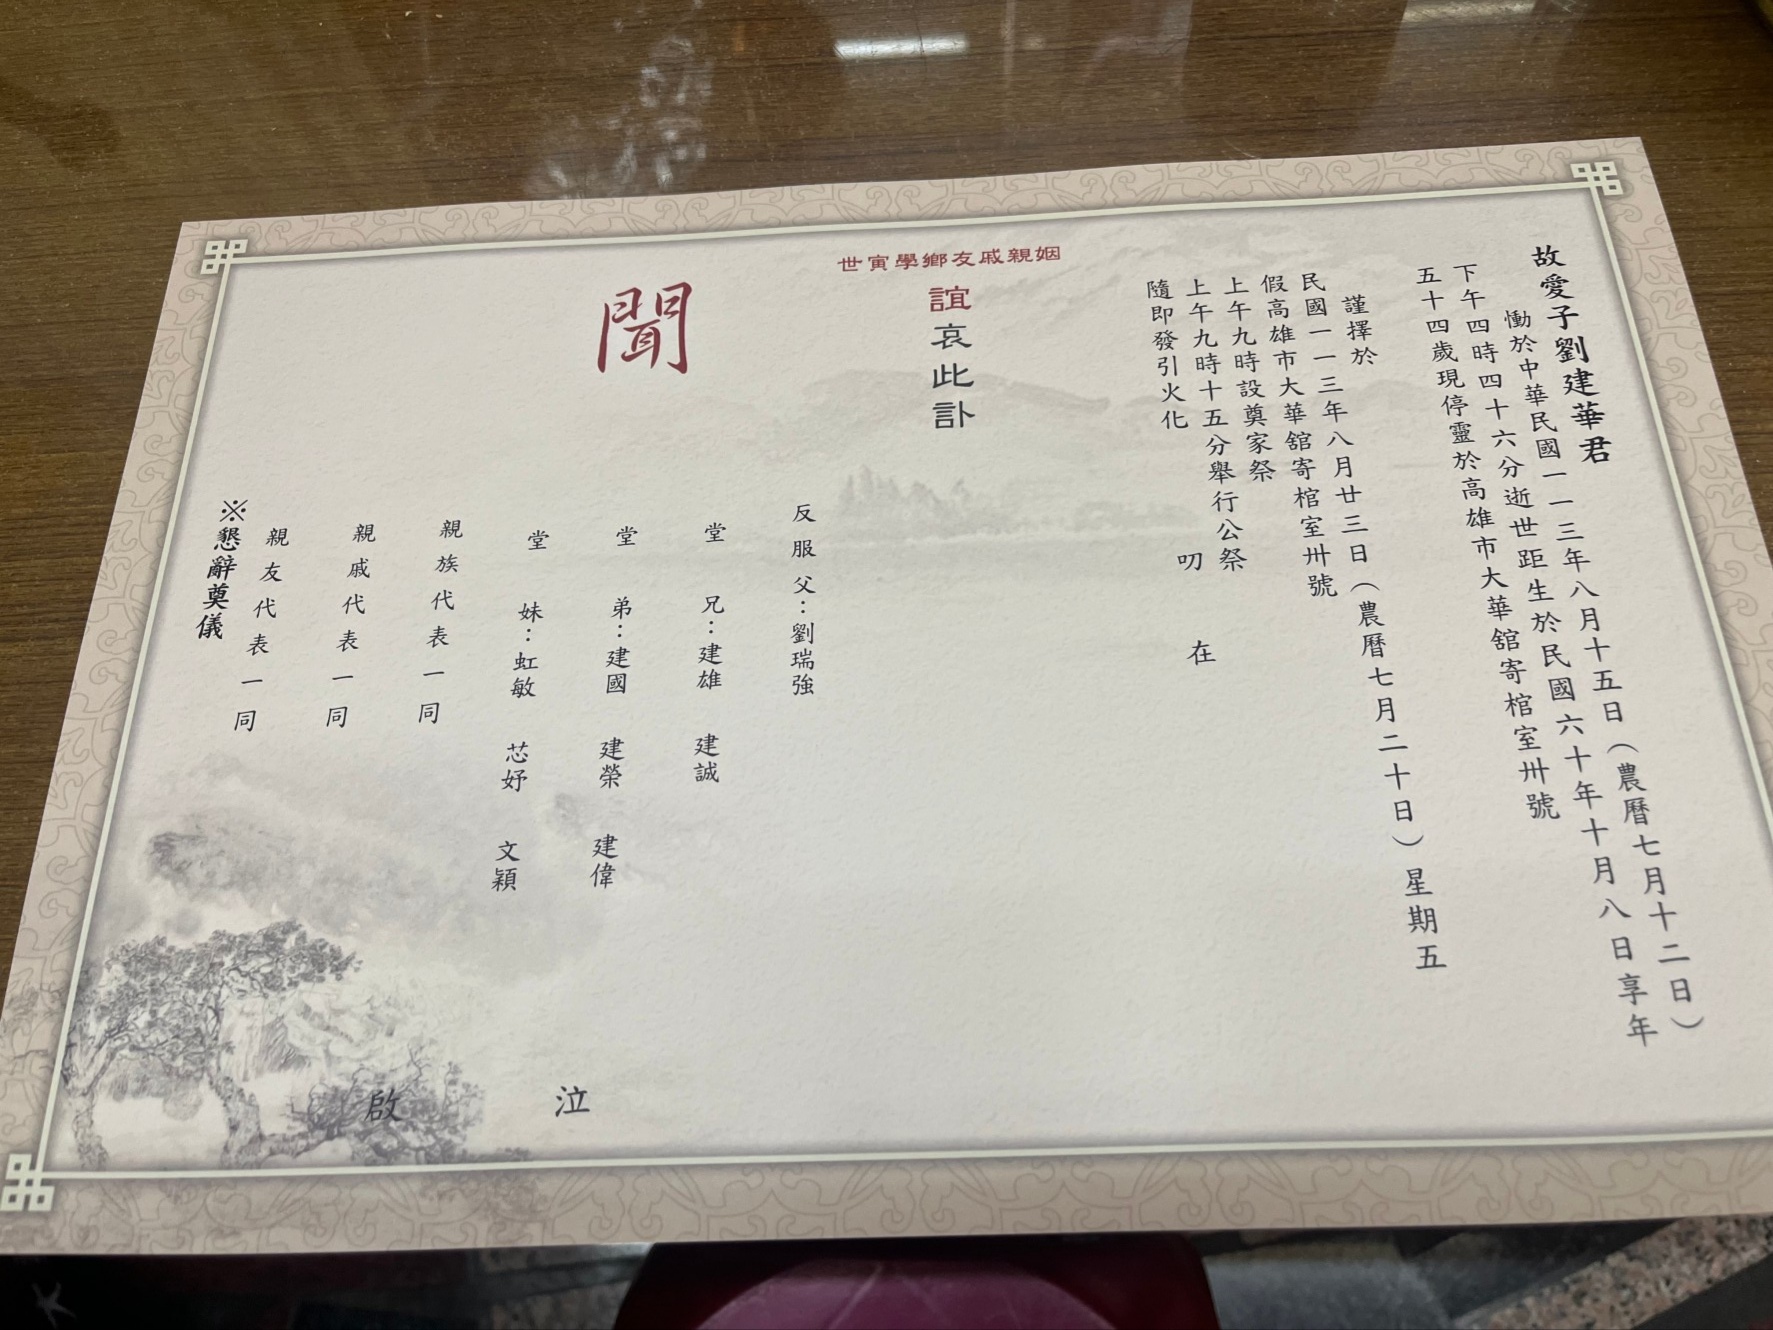 故愛子劉建華君
慟於中華民國一一三年八月十五日（農曆七月十二日）
下午四時四十六分逝世距生於民國六十年十月八日享年
五十四歲現停靈於高雄市大華舘寄棺室卅號
謹擇於
民國一一三年八月廿三日（農曆七月二十日）星期五
假高雄市大華舘寄棺室卅號
上午九時設奠家祭
上午九時十五分舉行公祭
隨即發引火化
叨在
姻親戚友鄉學寅世
誼哀此訃
聞
反服父：劉瑞強
堂兄：建雄 建誠
堂弟：建國 建榮 建偉
堂妹：虹敏 芯妤 文穎
親族代表一同
親戚代表一同
親友代表一同
泣啟
※懇辭奠儀